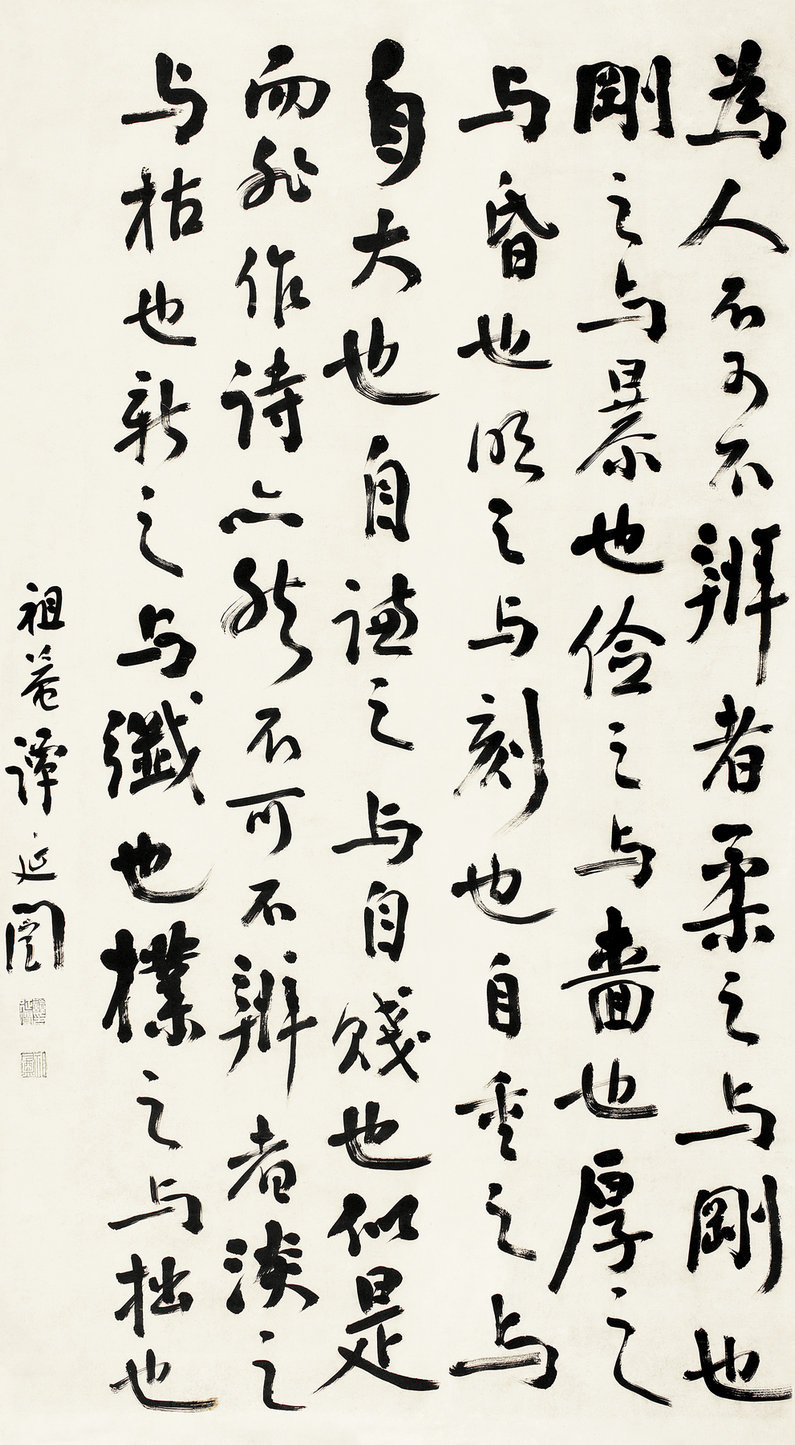 為人不可不辨者柔之与剛也
剛之与暴也儉之与嗇也厚之
与昏也明之与刻也自重之与
自大也自謙之与自賤也似是
而非作詩亦然不可不辨者淡之
与枯也新之与纖也樸之与拙也
祖菴譚延闓